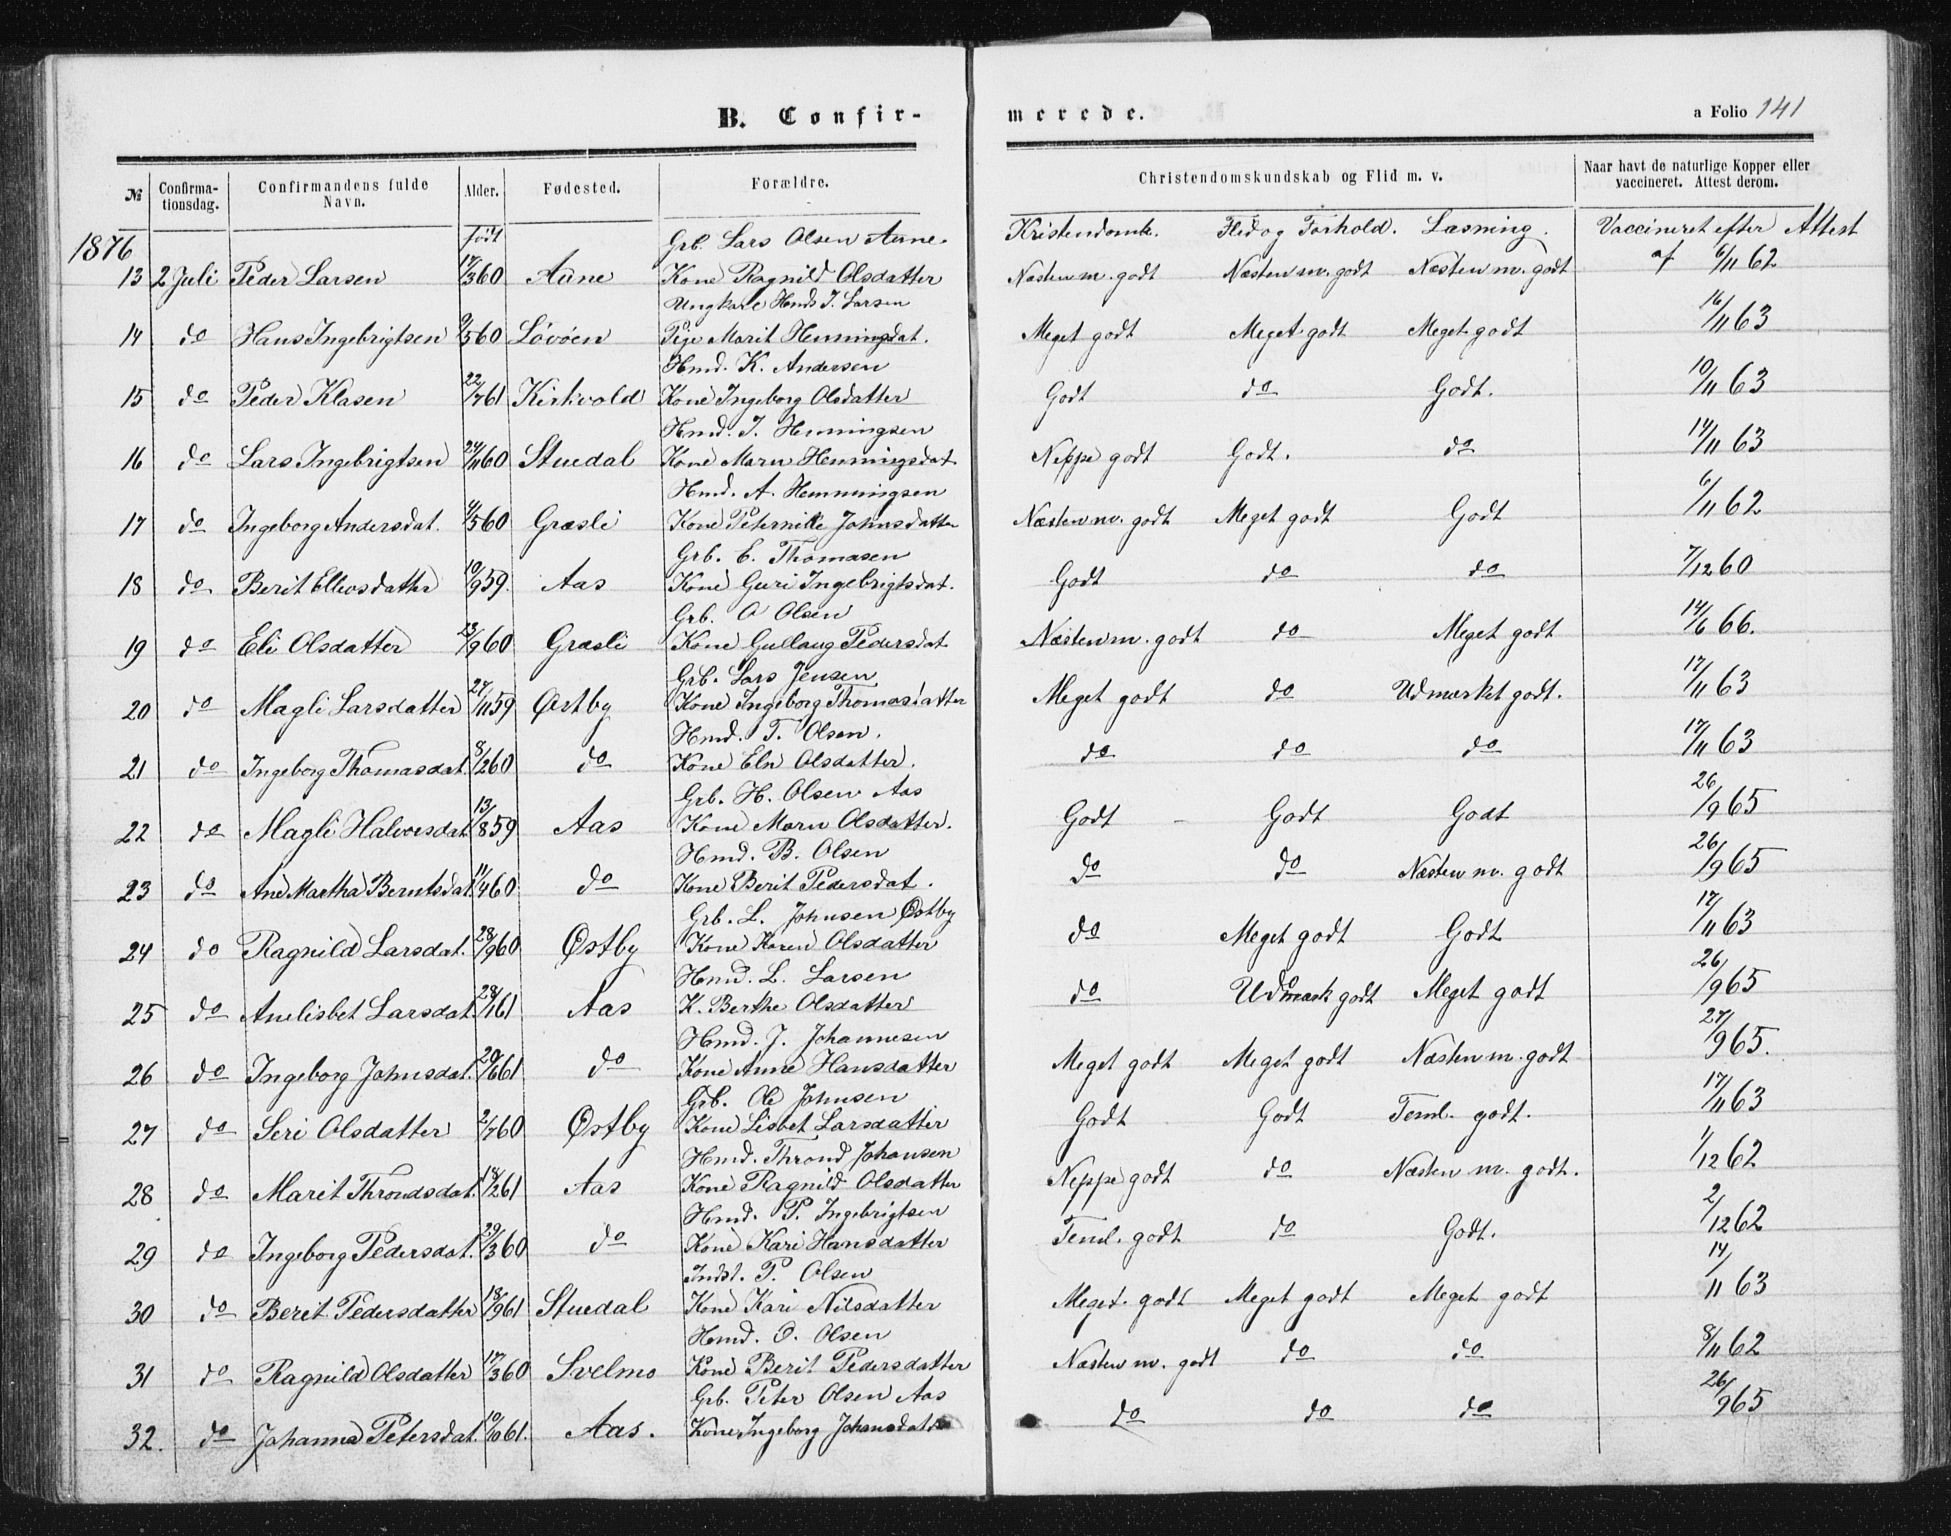 B. Confir- merede. a Folio 141
№ Confirma-tionsdag. Confirmandens fulde Navn. Alder. Fødested. Forældre. Christendomskundskab og Flid m. v. Naar havt de naturlige Kopper eller vaccineret. Attest derom.
1876 født Grb. Lars Olsen Aune. Kristendomk. Flid og Forhold. Læsning. Vaccineret efter Attest
13 2 Juli Peder Larsen 17/3 60 Aune Kone Ragnild Olsdatter Næsten m. godt Næsten m. godt Næsten m. godt af 6/11 62
Ungkarl Hmd. I. Larsen
14 do Hans Ingebrigtsen 9/5 60 Løvøen Pige Marit Henningsdat. Meget godt Meget godt Meget godt 16/11 63
Hmd. K. Andersen
15 do Peder Klasen 22/7 61 Kirkvold Kone Ingeborg Olsdatter Godt do Godt. 10/11 63
Hmd. I. Henningsen
16 do Lars Ingebrigtsen 24/11 60 Stuedal Kone Marn Henningsdat Neppe godt Godt. do 14/11 63
Hmd. A. Henningsen
17 do Ingeborg Andersdat. 4/5 60 Græsli Kone Peternille Johnsdatter Næsten m. godt Meget godt Godt 6/11 62
Grb. E. Thomasen
18 do Berit Ellevsdatter 10/9 59. Aas Kone Guri Ingebrigtsdat. Godt do do 7/12 60
Grb. O Olsen
19 do Eli Olsdatter 23/9 60 Græsli Kone Gullaug Pedersdat Næsten m. godt do Meget godt 14/6 66.
Grb. Lars Jensen
20 do Magli Larsdatter 27/11 59 Østby Kone Ingeborg Thomasdatter Meget godt do Udmærket godt. 17/11 63
Hmd. T. Olsen.
21 do Ingeborg Thomasdat. 8/2 60 do Kone Eln Olsdatter. do do do 17/11 63
Grb. H. Olsen Aas
22 do Magli Halvorsdat 13/8 59 Aas Kone Marn Olsdatter. Godt Godt Godt 26/9 65
Hmd. B. Olsen
23 do Ane Martha Berntsdat 11/4 60 do Kone Berit Pedersdat. do do Næsten m. godt 26/9 65
Grb. L. Johnsen Østby
24 do Ragnild Larsdat. 28/9 60 Østby Kone Karen Olsdatter do Meget godt Godt 17/11 63
Hmd. L. Larsen
25 do Anelisbet Larsdat. 28/1 61 Aas K. Berthe Olsdatter do Udmærk godt Meget godt 26/9 65
Hmd. J. Johannesen
26 do Ingeborg Johnsdat. 20/6 61 do Kone Anne Hansdatter Meget godt Meget godt Næsten m. godt 27/9 65.
Grb. Ole Johnsen
27 do Seri Olsdatter 2/7 60 Østby Kone Lisbet Larsdatter Godt Godt Teml. godt. 17/11 63
Hmd. Thrond Johansen
28 do Marit Throndsdat. 18/2 61 Aas Kone Ragnild Olsdatter Neppe godt do Næsten m. godt. 1/12 62
Hmd. P. Ingebrigtsen
29 do Ingeborg Pedersdat. 29/3 60 do Kone Kari Hansdatter Teml. godt do Godt. 2/12 62
Indst. P. Olsen
30 do Berit Pedersdatter 18/9 61 Stuedal Kone Kari Nilsdatter Meget godt Meget godt Meget godt 14/11 63
Hmd. O. Olsen
31 do Ragnild Olsdatter 17/3 60 Svelmo Kone Berit Pedersdatter Næsten m. godt do do 8/11 62
Grb. Peter Olsen Aas
32. do Johanna Petersdat. 10/10 61. Aas. Kone Ingeborg Johansdatt do do do 26/9 65